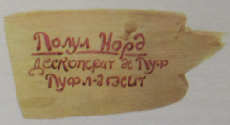 Полул Норд
Дескоперит де Пуф
Пуфл-а гэсит